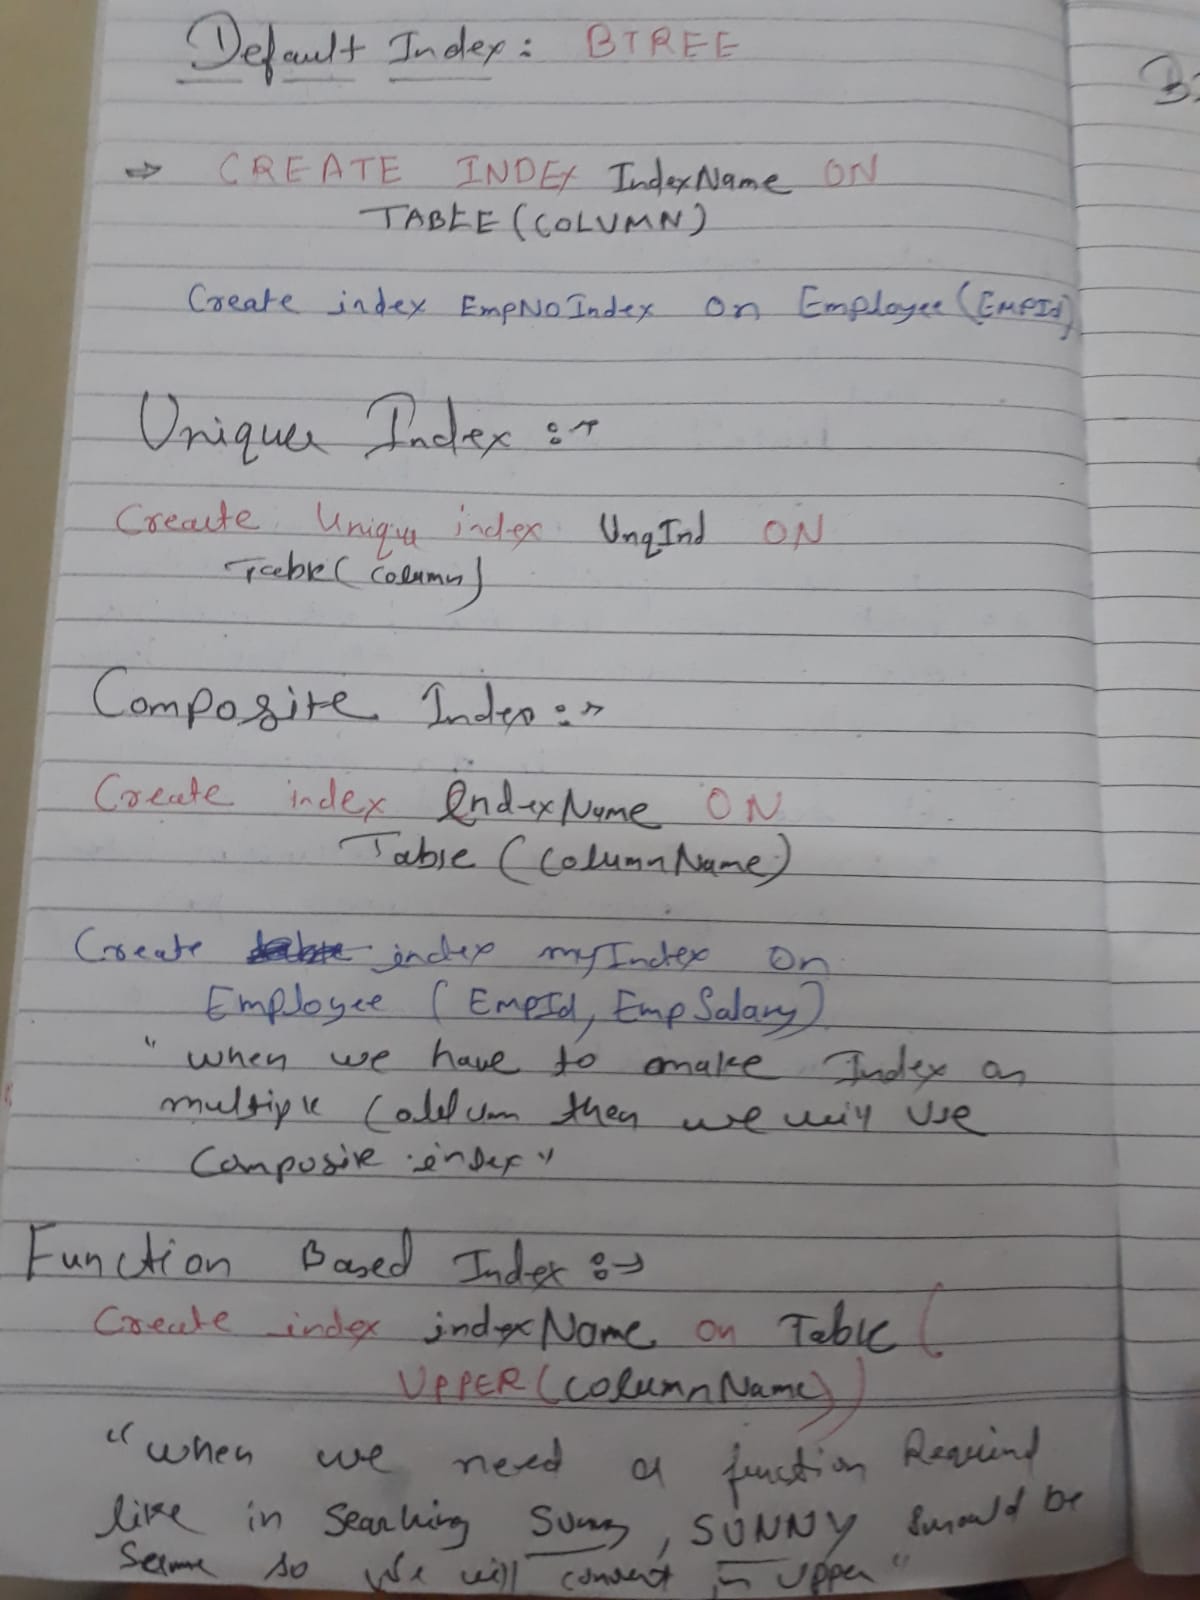 Default Index: BTREE
B
⇒ CREATE INDEX IndexName ON
TABLE (COLUMN)
Create index EmpNoIndex on Employee (EMPId)
Unique Index :→
Create Unique index UnqInd ON
Table ( Column)
Composite Index :→
Create index IndexName ON
Table (ColumnName)
Create index myIndex on
Employee ( EmpId, EmpSalary)
" when we have to make Index on
multiple then we will use
Composite index"
Function Based Index :→
Create index indexName on Table (
UPPER (ColumnName))
"when we need a function Required
like in Searching Sunny, SUNNY should be
Same so We will convert in Upper"